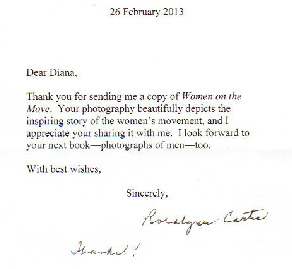 26 February 2013
Dear Diana,
Thank you for sending me a copy of Women on the
Move. Your photography beautifully depicts the
inspiring story of the women's movement, and I
appreciate your sharing it with me. I look forward to
your next book—photographs of men—too.
With best wishes,
Sincerely,
Rosalynn Carter
Thanks!